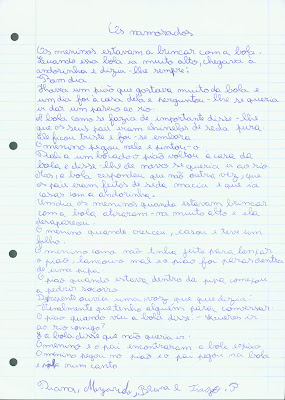 Os namorados
Os meninos estavam a brincar com a bola.
Quando essa bola ia muito alto, chegava à
andorinha e dizia-lhe sempre:
Bom dia
Havia um pião que gostava muito da bola e
um dia foi a casa dela e perguntou-lhe se queria
ir dar um passeio ao rio.
A bola como se fazia de importante disse-lhe
que os seus pais eram chinelos de seda pura.
Ele ficou triste e foi-se embora.
O menino pegou nele e pintou-o.
Dali a um bocado o pião voltou a casa da
bola e disse-lhe de novo se queria ir ao rio
Mas, a bola respondeu que não outra vez, que
os pais eram feitos de seda macia e que ia
casar com a andorinha.
Um dia os meninos quando estavam a brincar
com a bola atiraram-na muito alto e ela
desapareceu.
O menino quando cresceu, casou e teve um
filho.
O menino como não tinha jeito para lançar
o pião, lançou-o mal e o pião foi parar dentro
de uma pipa
O pião quando estava dentro da pipa começou
a pedir socorro
De repente ouviu uma voz que que dizia:
-Finalmente que tenho alguém para conversar.
O pião quando viu a bola disse: -Queres ir
ao rio comigo?
E a bola disse que não queria ir.
O menino e o pai encontraram a bola e o pião
O menino pegou no pião e o pai pegou na bola
e num canto
Diana, Margarida, Bruna e Tiago. P